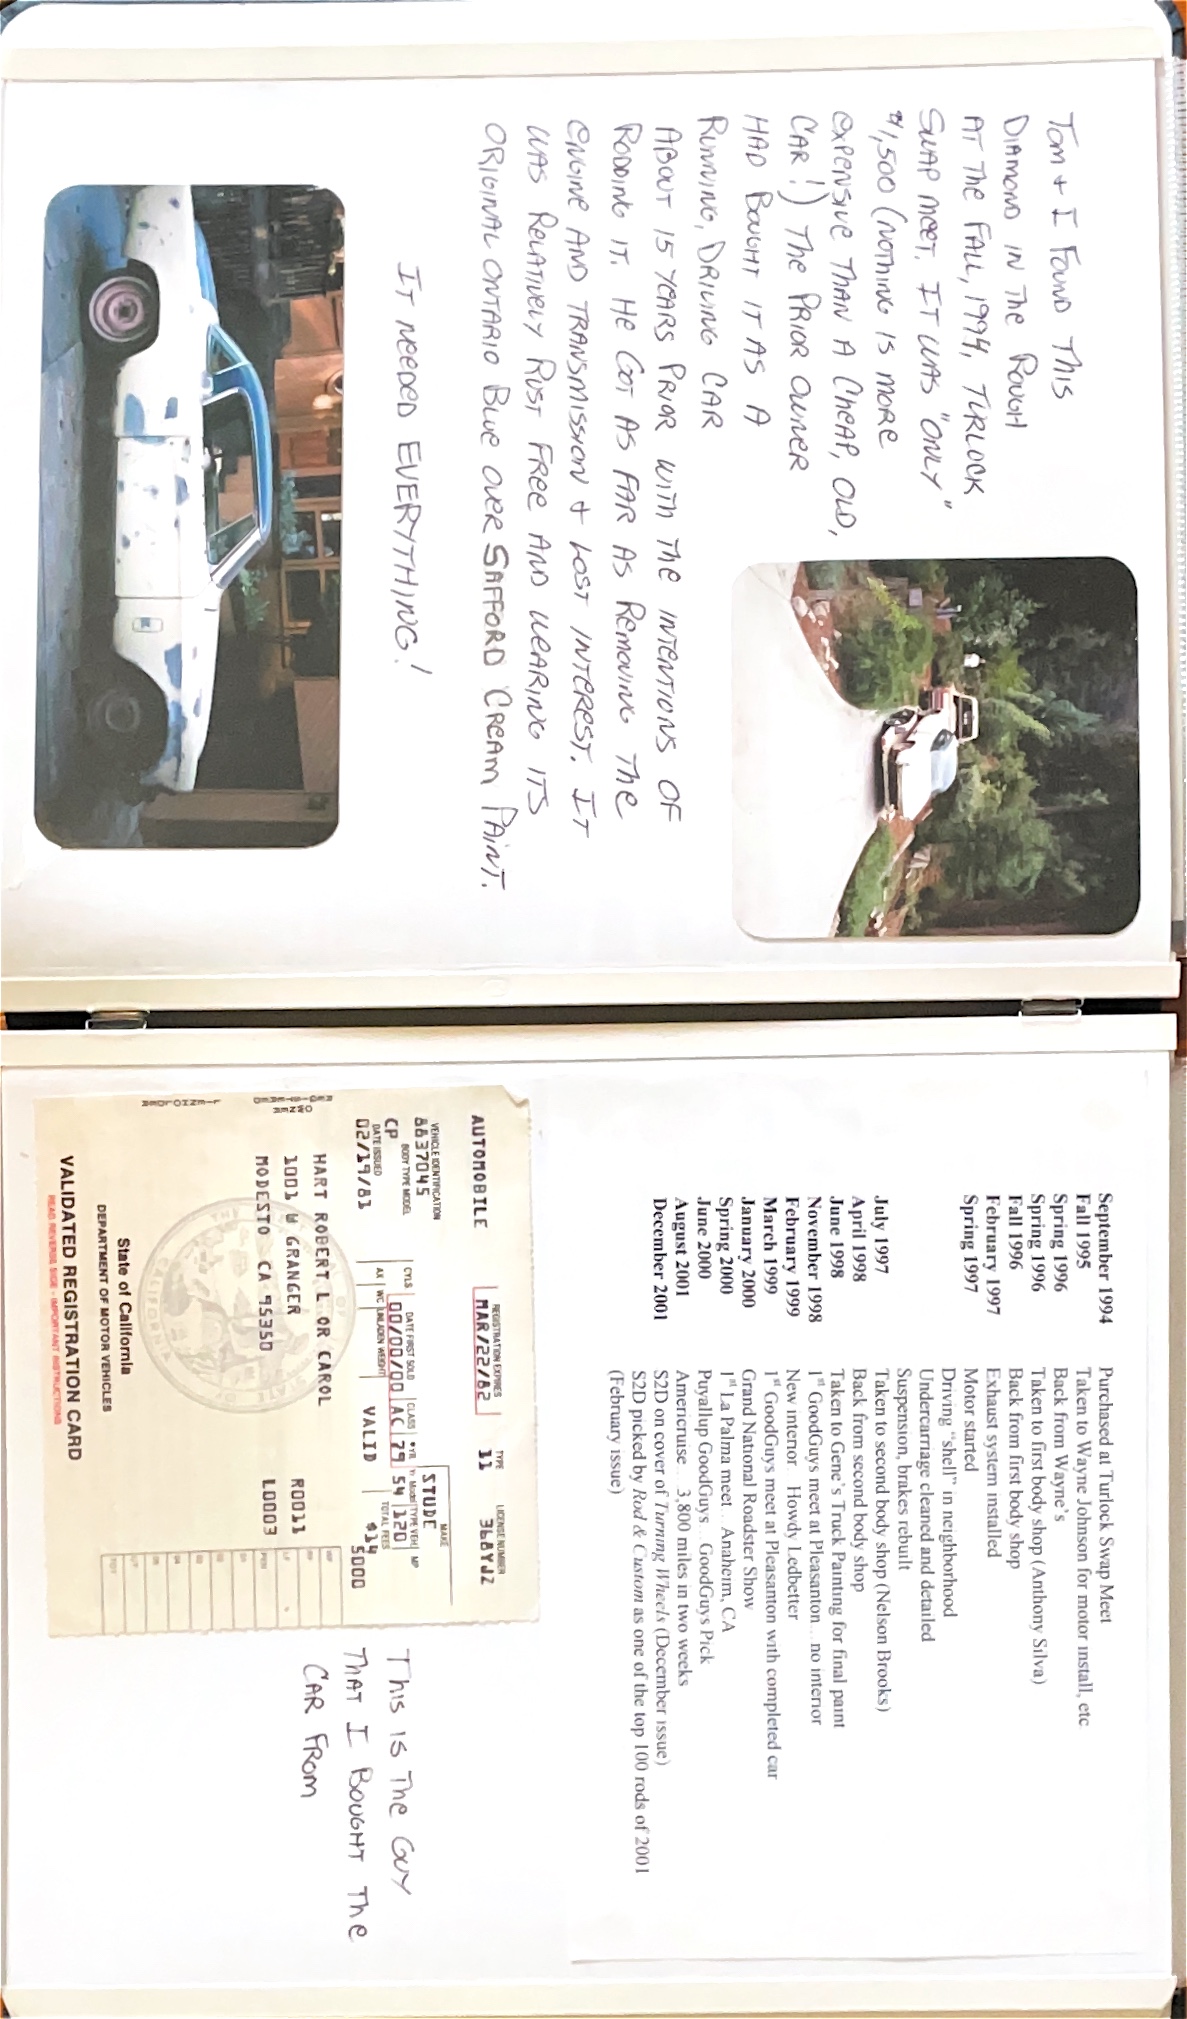 Tom + I FOUND THIS
DIAMOND IN THE ROUGH
AT THE FALL, 1994, TURLOCK
SWAP MEET. IT WAS "ONLY"
$1,500 (NOTHING IS MORE
EXPENSIVE THAN A CHEAP, OLD,
CAR!) THE PRIOR OWNER
HAD BOUGHT IT AS A
RUNNING, DRIVING CAR
ABOUT 15 YEARS PRIOR WITH THE INTENTIONS OF
RODDING IT. HE GOT AS FAR AS REMOVING THE
ENGINE AND TRANSMISSION + LOST INTEREST. IT
WAS RELATIVELY RUST FREE AND WEARING ITS
ORIGINAL ONTARIO BLUE OVER SAFFORD CREAM PAINT.
IT NEEDED EVERYTHING!
September 1994 Purchased at Turlock Swap Meet
Fall 1995 Taken to Wayne Johnson for motor install, etc
Spring 1996 Back from Wayne's
Spring 1996 Taken to first body shop (Anthony Silva)
Fall 1996 Back from first body shop
February 1997 Exhaust system installed
Spring 1997 Motor started
Driving "shell" in neighborhood
Undercarriage cleaned and detailed
Suspension, brakes rebuilt
July 1997 Taken to second body shop (Nelson Brooks)
April 1998 Back from second body shop
June 1998 Taken to Gene's Truck Painting for final paint
November 1998 1st GoodGuys meet at Pleasanton...no interior
February 1999 New interior...Howdy Ledbetter
March 1999 1st GoodGuys meet at Pleasanton with completed car
January 2000 Grand National Roadster Show
Spring 2000 1st La Palma meet...Anaheim, CA
June 2000 Puyallup GoodGuys...GoodGuys Pick
August 2001 Americruise...3,800 miles in two weeks
December 2001 S2D on cover of Turning Wheels (December issue)
S2D picked by Rod & Custom as one of the top 100 rods of 2001
(February issue)
AUTOMOBILE
REGISTRATION EXPIRES TYPE LICENSE NUMBER
MAR/22/82 11 368YJZ
VEHICLE IDENTIFICATION MAKE
8837045 STUDE
BODY TYPE MODEL CYLS DATE FIRST SOLD CLASS *YR Yr Model TYPE VEH. MP
CP 00/00/00 AC 79 54 120
DATE ISSUED AX WC UNLADEN WEIGHT TOTAL FEES
02/19/81 VALID $14
5000
REGISTERED OWNER
HART ROBERT L OR CAROL
1001 W GRANGER R0011
MODESTO CA 95350 L0003
LIENHOLDER
State of California
DEPARTMENT OF MOTOR VEHICLES
VALIDATED REGISTRATION CARD
READ REVERSE SIDE - IMPORTANT INSTRUCTIONS
THIS IS THE GUY
THAT I BOUGHT THE
CAR FROM